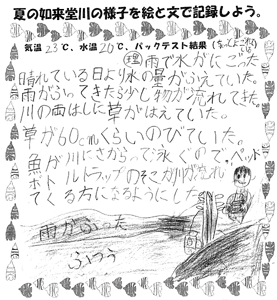 夏の如来堂川の様子を絵と文で記録しよう。
気温23℃、水温20℃、パックテスト結果(
理 雨で水がにごった
晴れている日より水の量がふえていた。
雨がふってきたら少し物が流れてきた
川の両はしに草がはえていた。
草が60cmくらいのびていた。
魚が川にさからって泳ぐので、ペット
ボトルトラップのそこが川が流れ
てくる方になるようにした。
雨がふった
ふつう